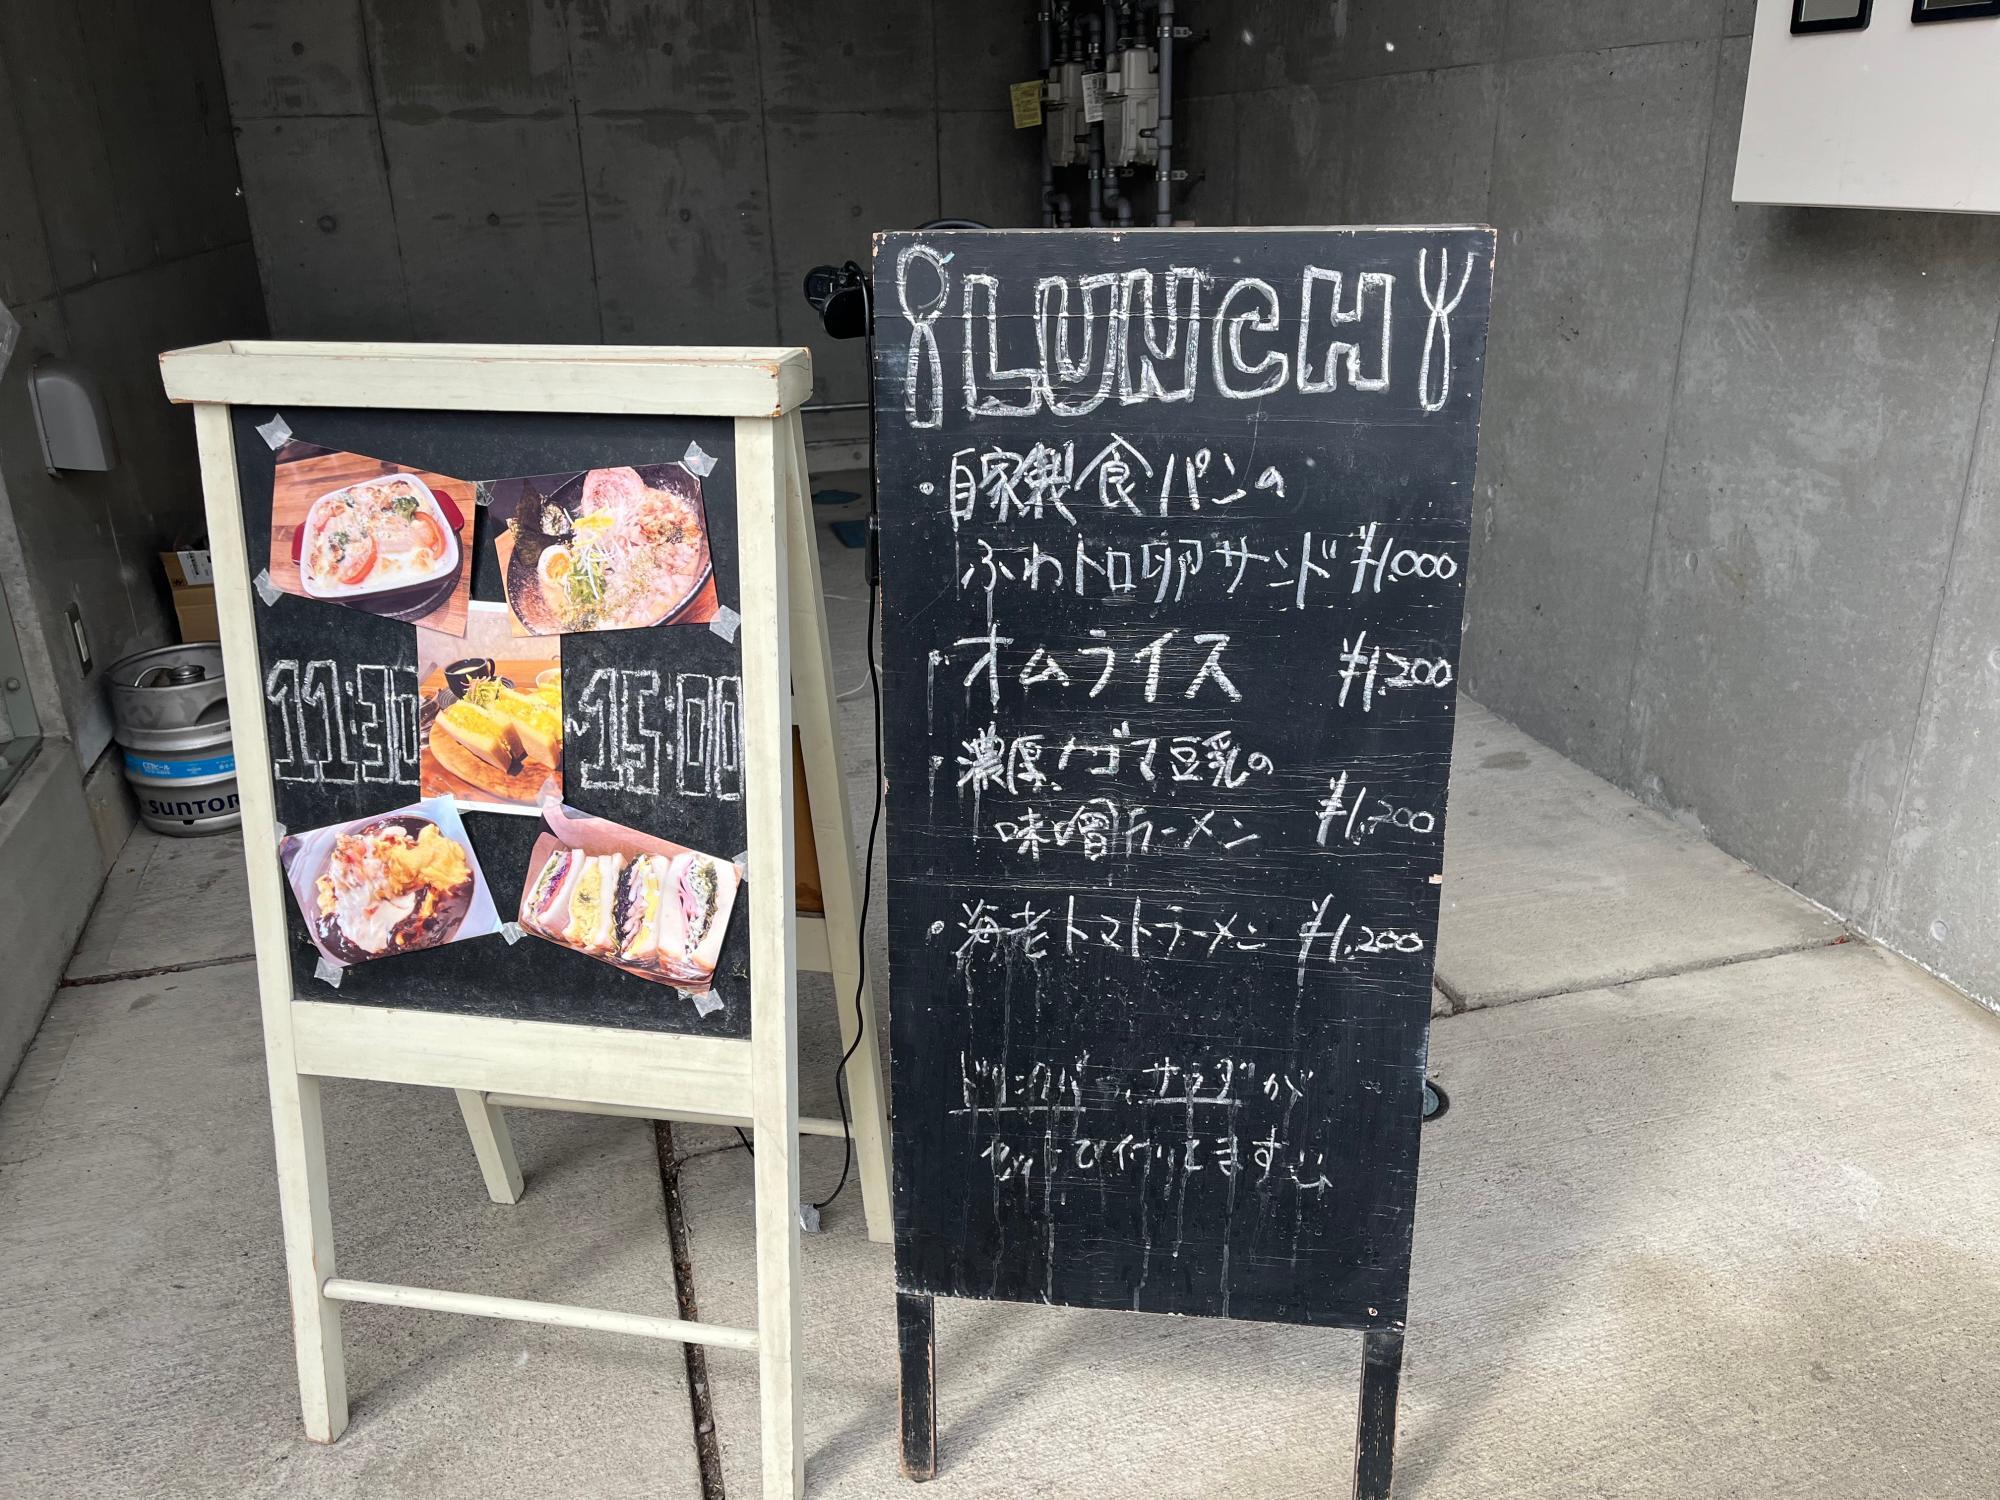 11:30
~15:00
SUNTOR
LUNCH
・自家製食パンの
ふわトロ卵サンド ¥1,000
・オムライス ¥1,200
・濃厚ゴマ豆乳の
味噌ラーメン ¥1,200
・海老トマトラーメン ¥1,200
ドリンクバー、サラダが
セットで付いてます